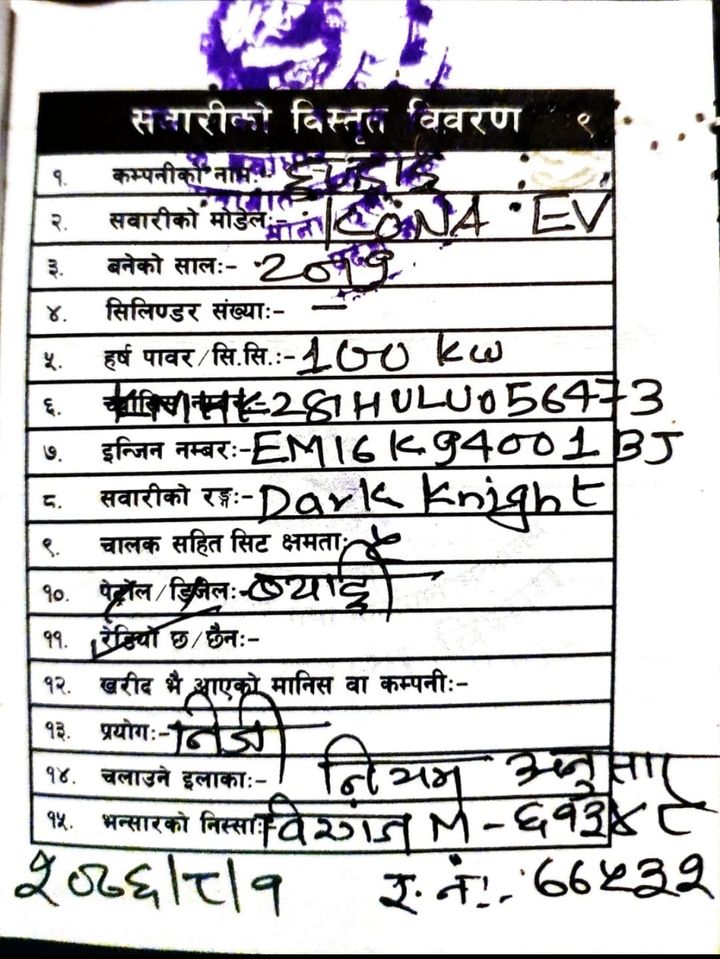 सवारीको विस्तृत विवरण ९
१. कम्पनीको नाम:- हुण्डाई
२. सवारीको मोडेल:- KONA EV
३. बनेको साल:- 2019
४. सिलिण्डर संख्या:- —
५. हर्ष पावर/सि.सि.:- 100 kw
६. KMHK281HULU056473
७. इन्जिन नम्बर:- EM16K94001BJ
८. सवारीको रङ्ग:- Dark Knight
९. चालक सहित सिट क्षमता:- ५
१०. पेट्रोल/डिजेल:- ब्याट्री
११. रेडियो छ/छैन:-
१२. खरीद भै आएको मानिस वा कम्पनी:-
१३. प्रयोग:- निजी
१४. चलाउने इलाका:- नियम अनुसार
१५. भन्सारको निस्सा:- विरगंज M-६१३४८
२०७६/८/१ र. नं:- ७७५३२